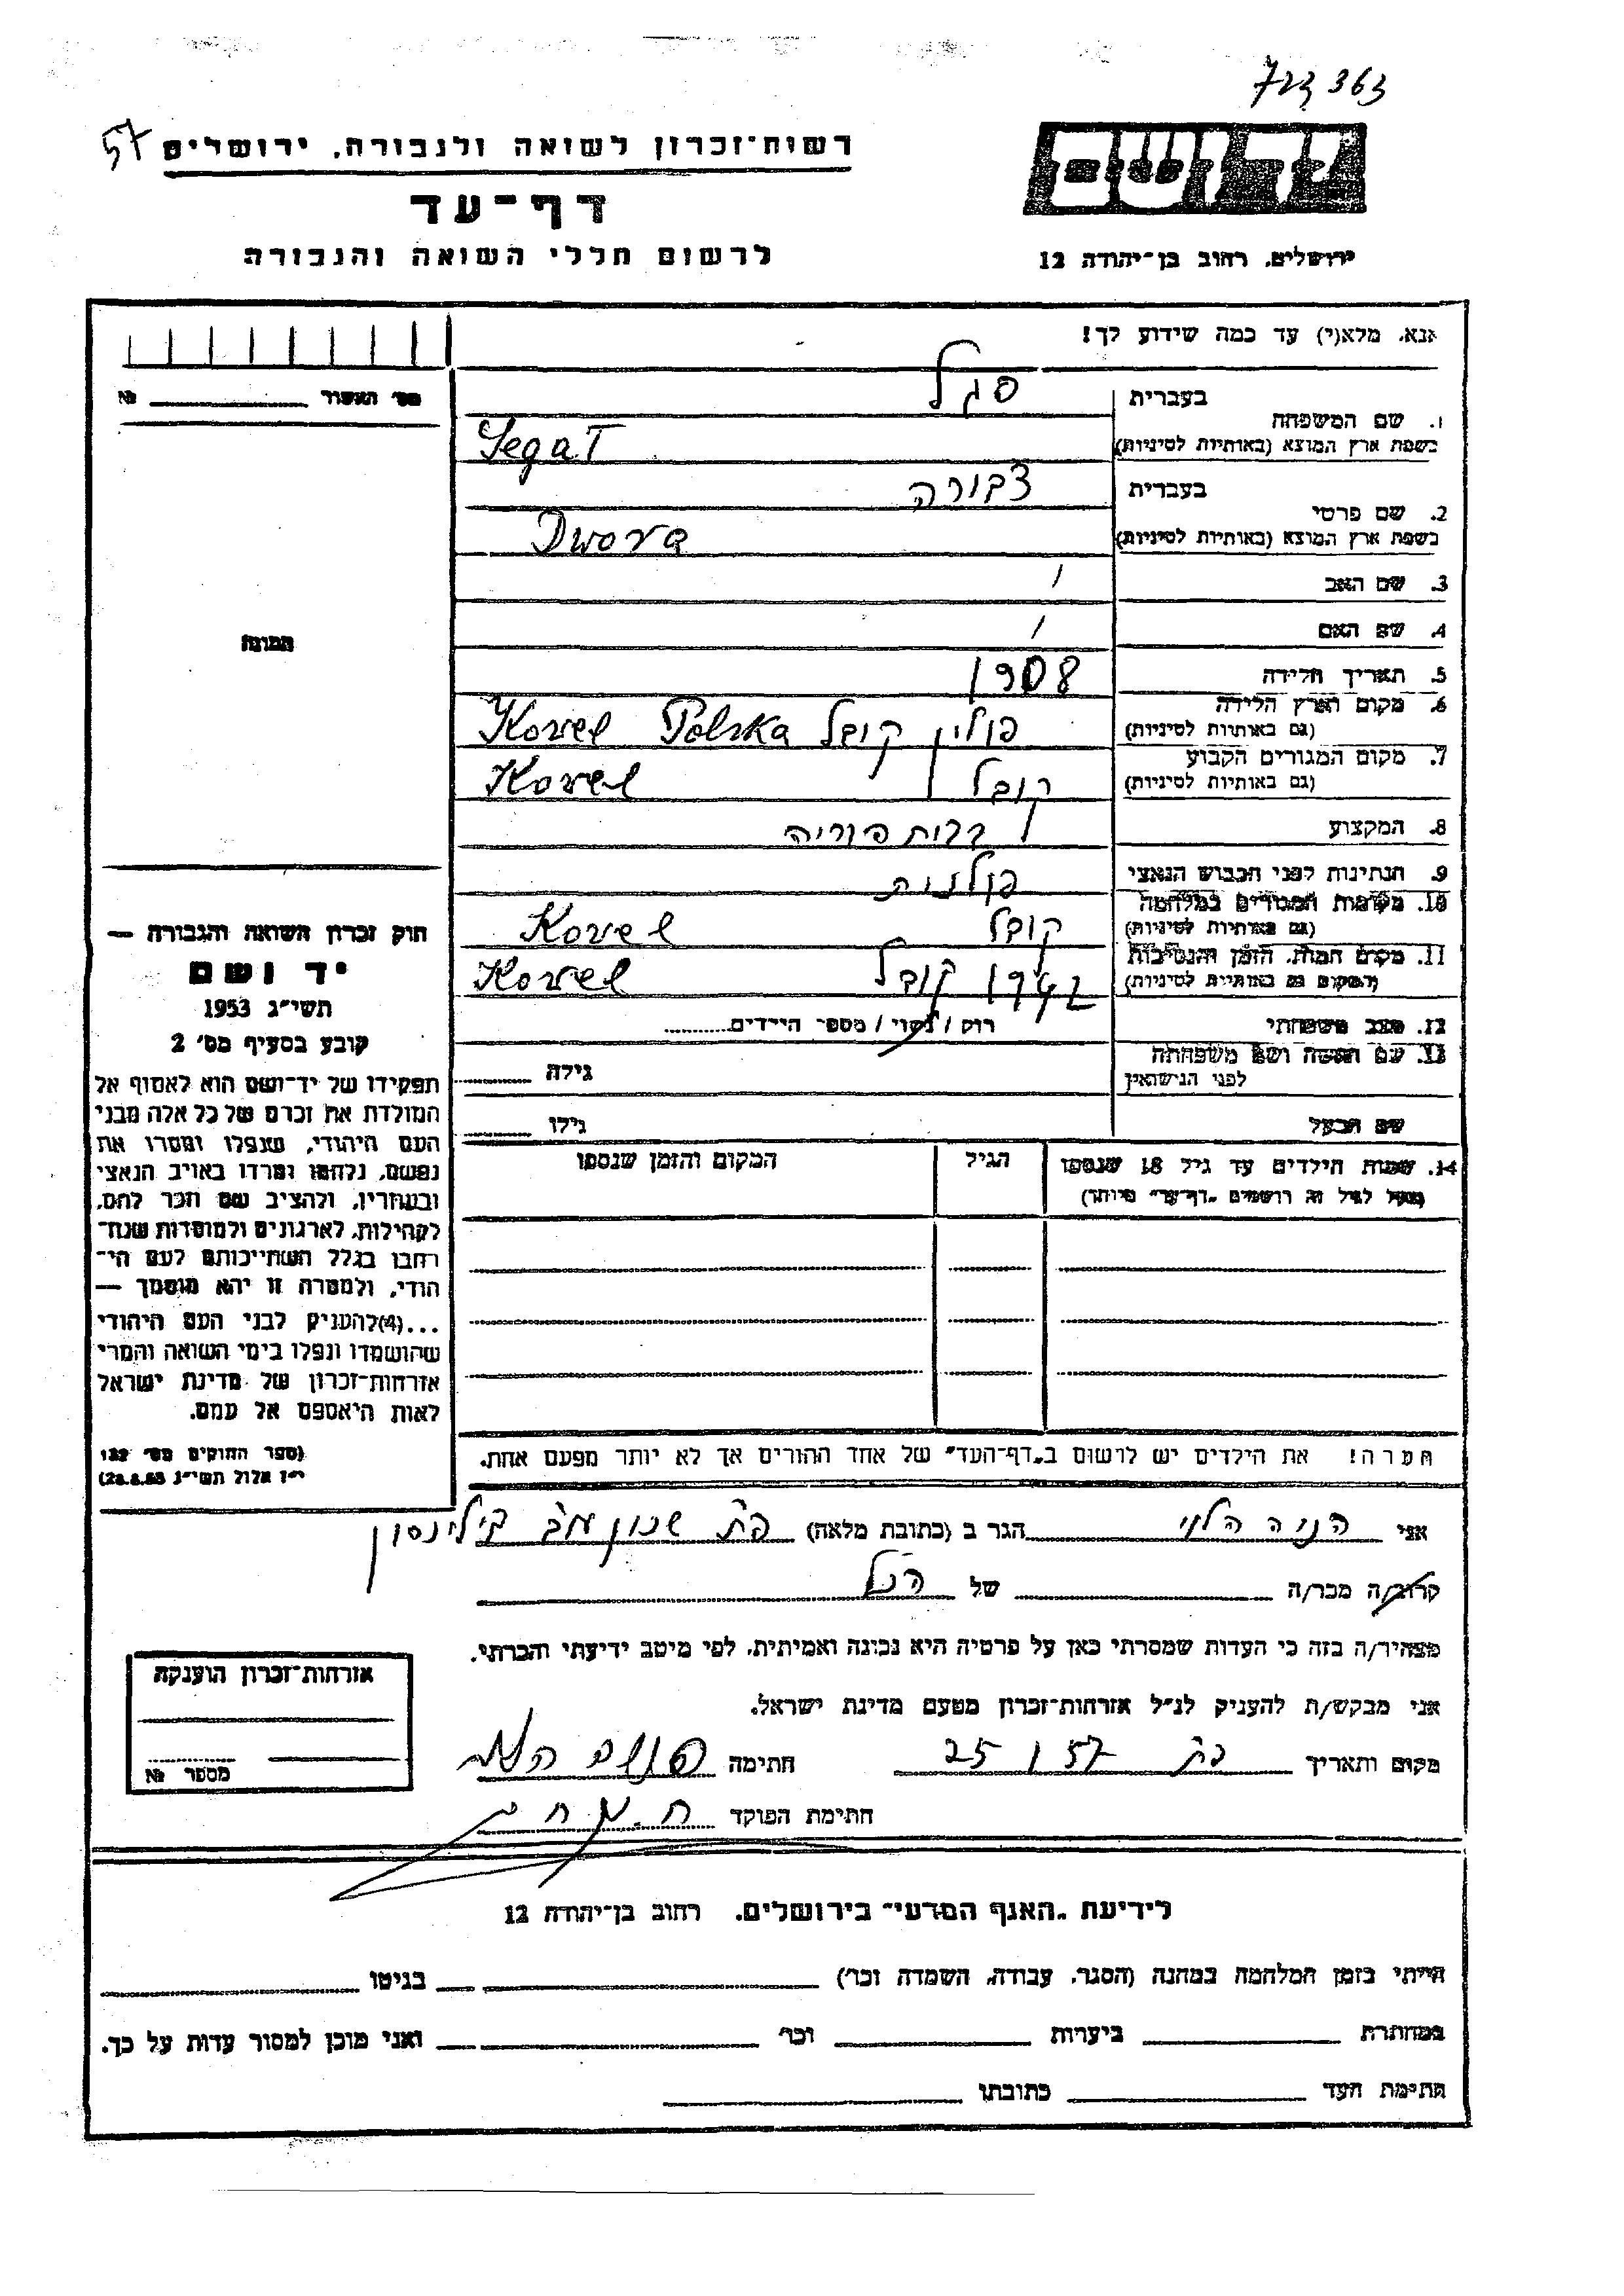 723 363
57
רשות-זכרון לשואה ולגבורה, ירושלים
יד ושם
דף-עד
לרשום חללי השואה והגבורה
ירושלים, רחוב בן-יהודה 12
אנא, מלא(י) עד כמה שידוע לך!
מס' האשור №
בעברית סגל
1. שם המשפחה
בשפת ארץ המוצא (באותיות לטיניות) Segal
בעברית דבורה
2. שם פרטי
בשפת ארץ המוצא (באותיות לטיניות) Dwora
3. שם האב /
4. שם האם /
תמונה
5. תאריך הלידה 1908
6. מקום וארץ הלידה
(גם באותיות לטיניות) פולין קובל Kovel Polska
7. מקום המגורים הקבוע
(גם באותיות לטיניות) קובל Kovel
8. המקצוע
9. הנתינות לפני הכבוש הנאצי פולנית
10. מקומות המגורים במלחמה
(גם באותיות לטיניות) קובל Kovel
11. מקום המות, הזמן והנסיבות
(המקום גם באותיות לטיניות) 1942 קובל Kovel
12. מצב משפחתי רווק / נשוי / מספר הילדים
13. שם האשה ושם משפחתה
לפני הנישואין גילה
שם הבעל גילו
14. שמות הילדים עד גיל 18 שנספו הגיל המקום והזמן שנספו
(מעל לגיל זה רושמים "דף-עד" מיוחד)
חוק זכרון השואה והגבורה —
יד ושם
תשי"ג 1953
קובע בסעיף מס' 2
תפקידו של יד-ושם הוא לאסוף אל
המולדת את זכרם של כל אלה מבני
העם היהודי, שנפלו ומסרו את
נפשם, נלחמו ומרדו באויב הנאצי
ובעוזריו, ולהציב שם וזכר להם,
לקהילות, לארגונים ולמוסדות שנח-
רבו בגלל השתייכותם לעם הי-
הודי, ולמטרה זו יהא מוסמך —
...(4)להעניק לבני העם היהודי
שהושמדו ונפלו בימי השואה והמרי
אזרחות-זכרון של מדינת ישראל
לאות היאספם אל עמם.
(ספר החוקים מס' 132
י"ז אלול תשי"ג 28.8.53)
הערה! את הילדים יש לרשום ב"דף-העד" של אחד ההורים אך לא יותר מפעם אחת.
אני הניה הלוי הגר ב (כתובת מלאה) פת שכון בילינסון
קרוב/ה מכר/ה של הנ"ל
מצהיר/ה בזה כי העדות שמסרתי כאן על פרטיה היא נכונה ואמיתית, לפי מיטב ידיעתי והכרתי.
אני מבקש/ת להעניק לנ"ל אזרחות-זכרון מטעם מדינת ישראל.
מקום ותאריך פת 25 1 57 חתימה
חתימת הפוקד
אזרחות-זכרון הוענקה
מספר №
לידיעת "האגף המדעי" בירושלים, רחוב בן-יהודה 12
הייתי בזמן המלחמה במחנה (הסגר, עבודה, השמדה וכו') בגיטו
במחתרת ביערות וכו' ואני מוכן למסור עדות על כך.
חתימת העד כתובתו